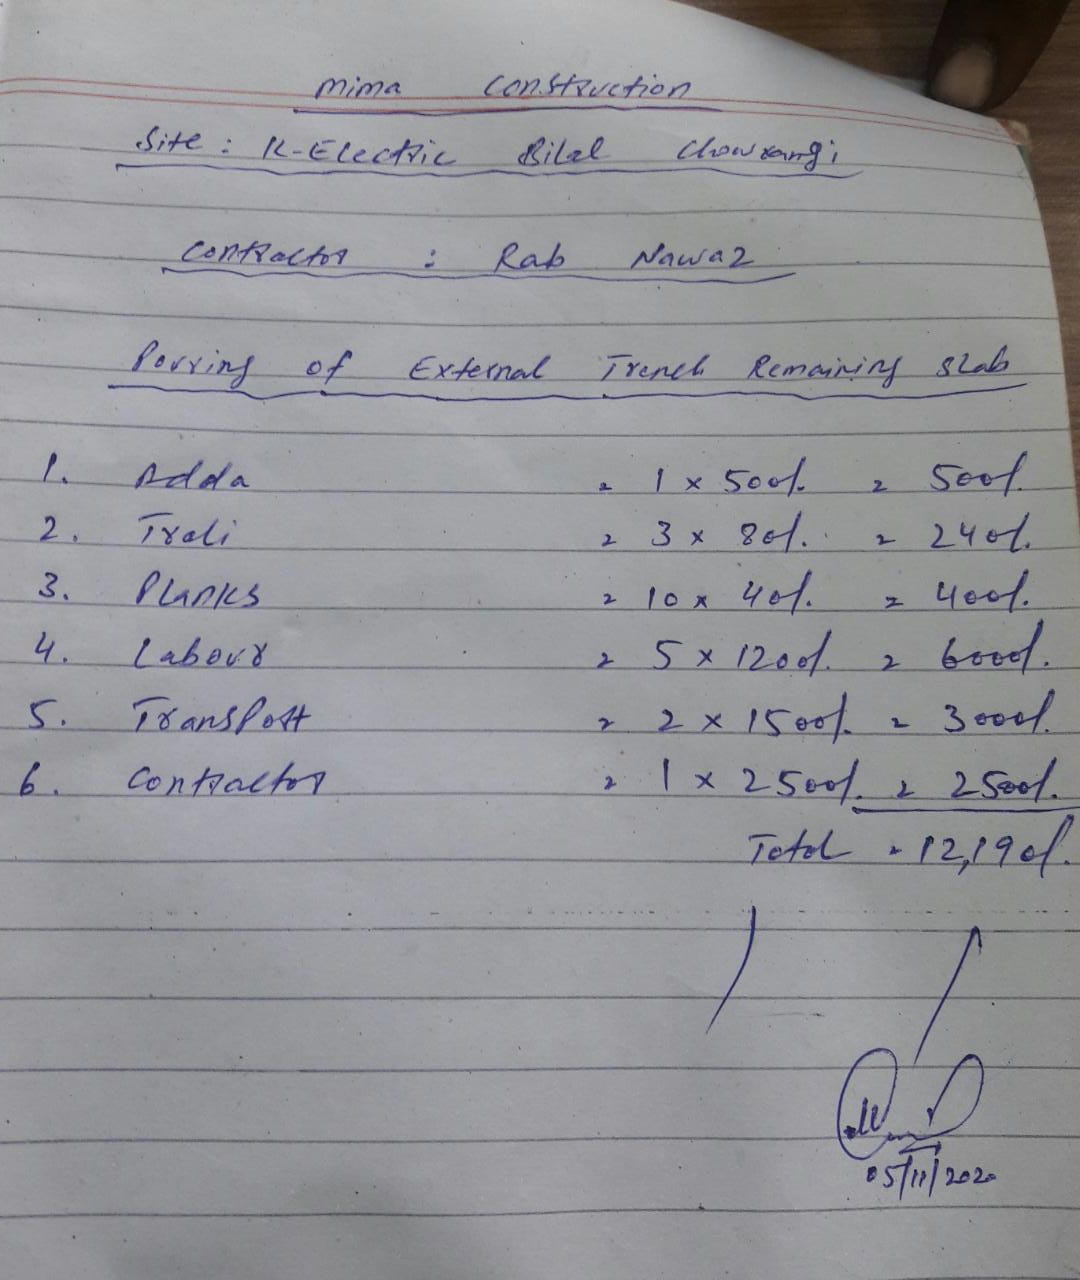 mima Construction
Site : K-Electric Bilal Chowrangi
Contractor : Rab Nawaz
Pouring of External Trench Remaining slab
1. Adda = 1 x 500/. = 500/.
2. Trali = 3 x 80/. = 240/.
3. Planks = 10 x 40/. = 400/.
4. Labour = 5 x 1200/. = 6000/.
5. Transport = 2 x 1500/. = 3000/.
6. Contractor = 1 x 2500/. = 2500/.
Total = 12,190/.
05/11/2020